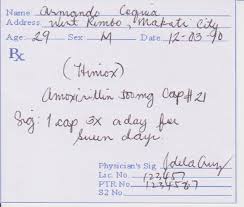 Name Armando Cequia
Address West Rembo, Makati City
Age: 29 Sex: M Date 12-03-90
Rx
(Himox)
Amoxicillin 500mg Cap # 21
Sig: 1 cap 3x a day for
seven days
Physician's Sig. J dela Cruz
Lic. No. 123457
PTR No. 1234587
S2 No.